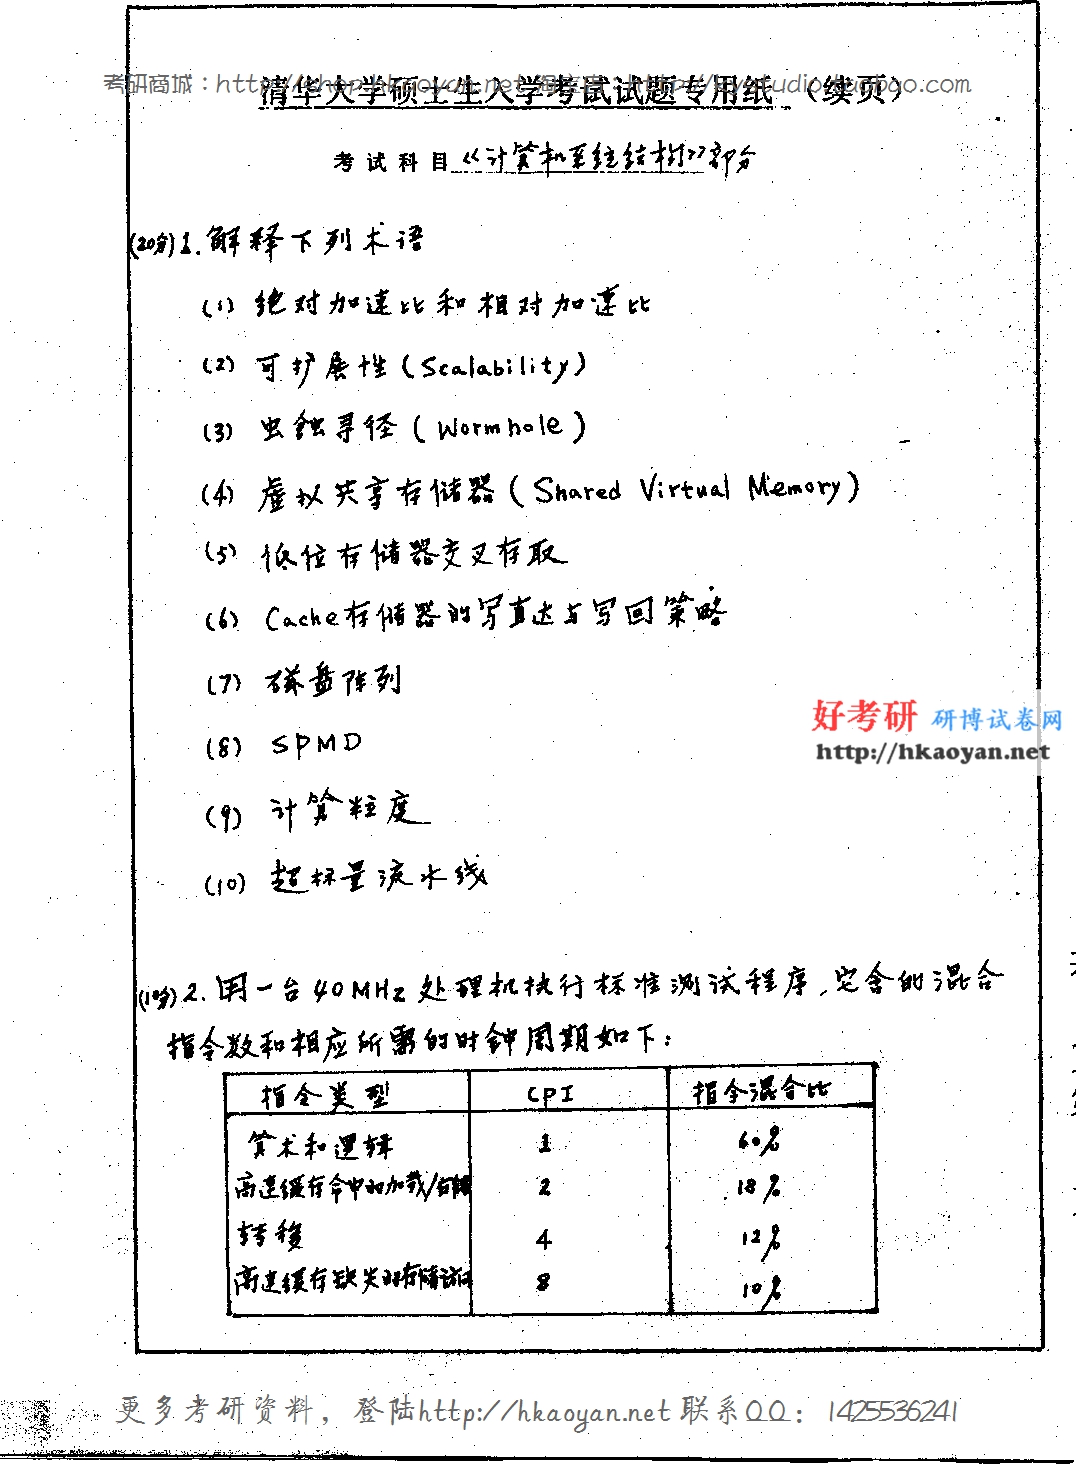 考研商城：http://shop.hkaoyan.net
清华大学硕士生入学考试试题专用纸 （续页）
考试科目《计算机系统结构》部分
(20分)1.解释下列术语
(1) 绝对加速比和相对加速比
(2) 可扩展性(Scalability)
(3) 虫蚀寻径(Wormhole)
(4) 虚拟共享存储器(Shared Virtual Memory)
(5) 低位存储器交叉存取
(6) Cache存储器的写直达与写回策略
(7) 磁盘阵列
(8) SPMD
(9) 计算粒度
(10) 超标量流水线
好考研 研博试卷网
http://hkaoyan.net
(10分)2.用一台40MHz处理机执行标准测试程序,它含的混合
指令数和相应所需的时钟周期如下:
指令类型 CPI 指令混合比
算术和逻辑 1 60%
高速缓存命中的加载/存储 2 18%
转移 4 12%
高速缓存缺失的存储访问 8 10%
更多考研资料，登陆http://hkaoyan.net 联系QQ：1425536241